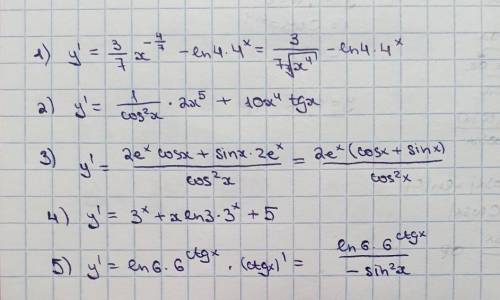 1) y' = 3/7 x^(-4/7) - ln4·4^x = 3/(7 ⁷√x⁴) - ln4·4^x
2) y' = 1/cos²x · 2x⁵ + 10x⁴ tgx
3) y' = (2e^x cosx + sinx·2e^x)/cos²x = 2e^x (cosx + sinx)/cos²x
4) y' = 3^x + x ln3·3^x + 5
5) y' = ln6·6^(ctgx) · (ctgx)' = ln6·6^(ctgx)/(-sin²x)